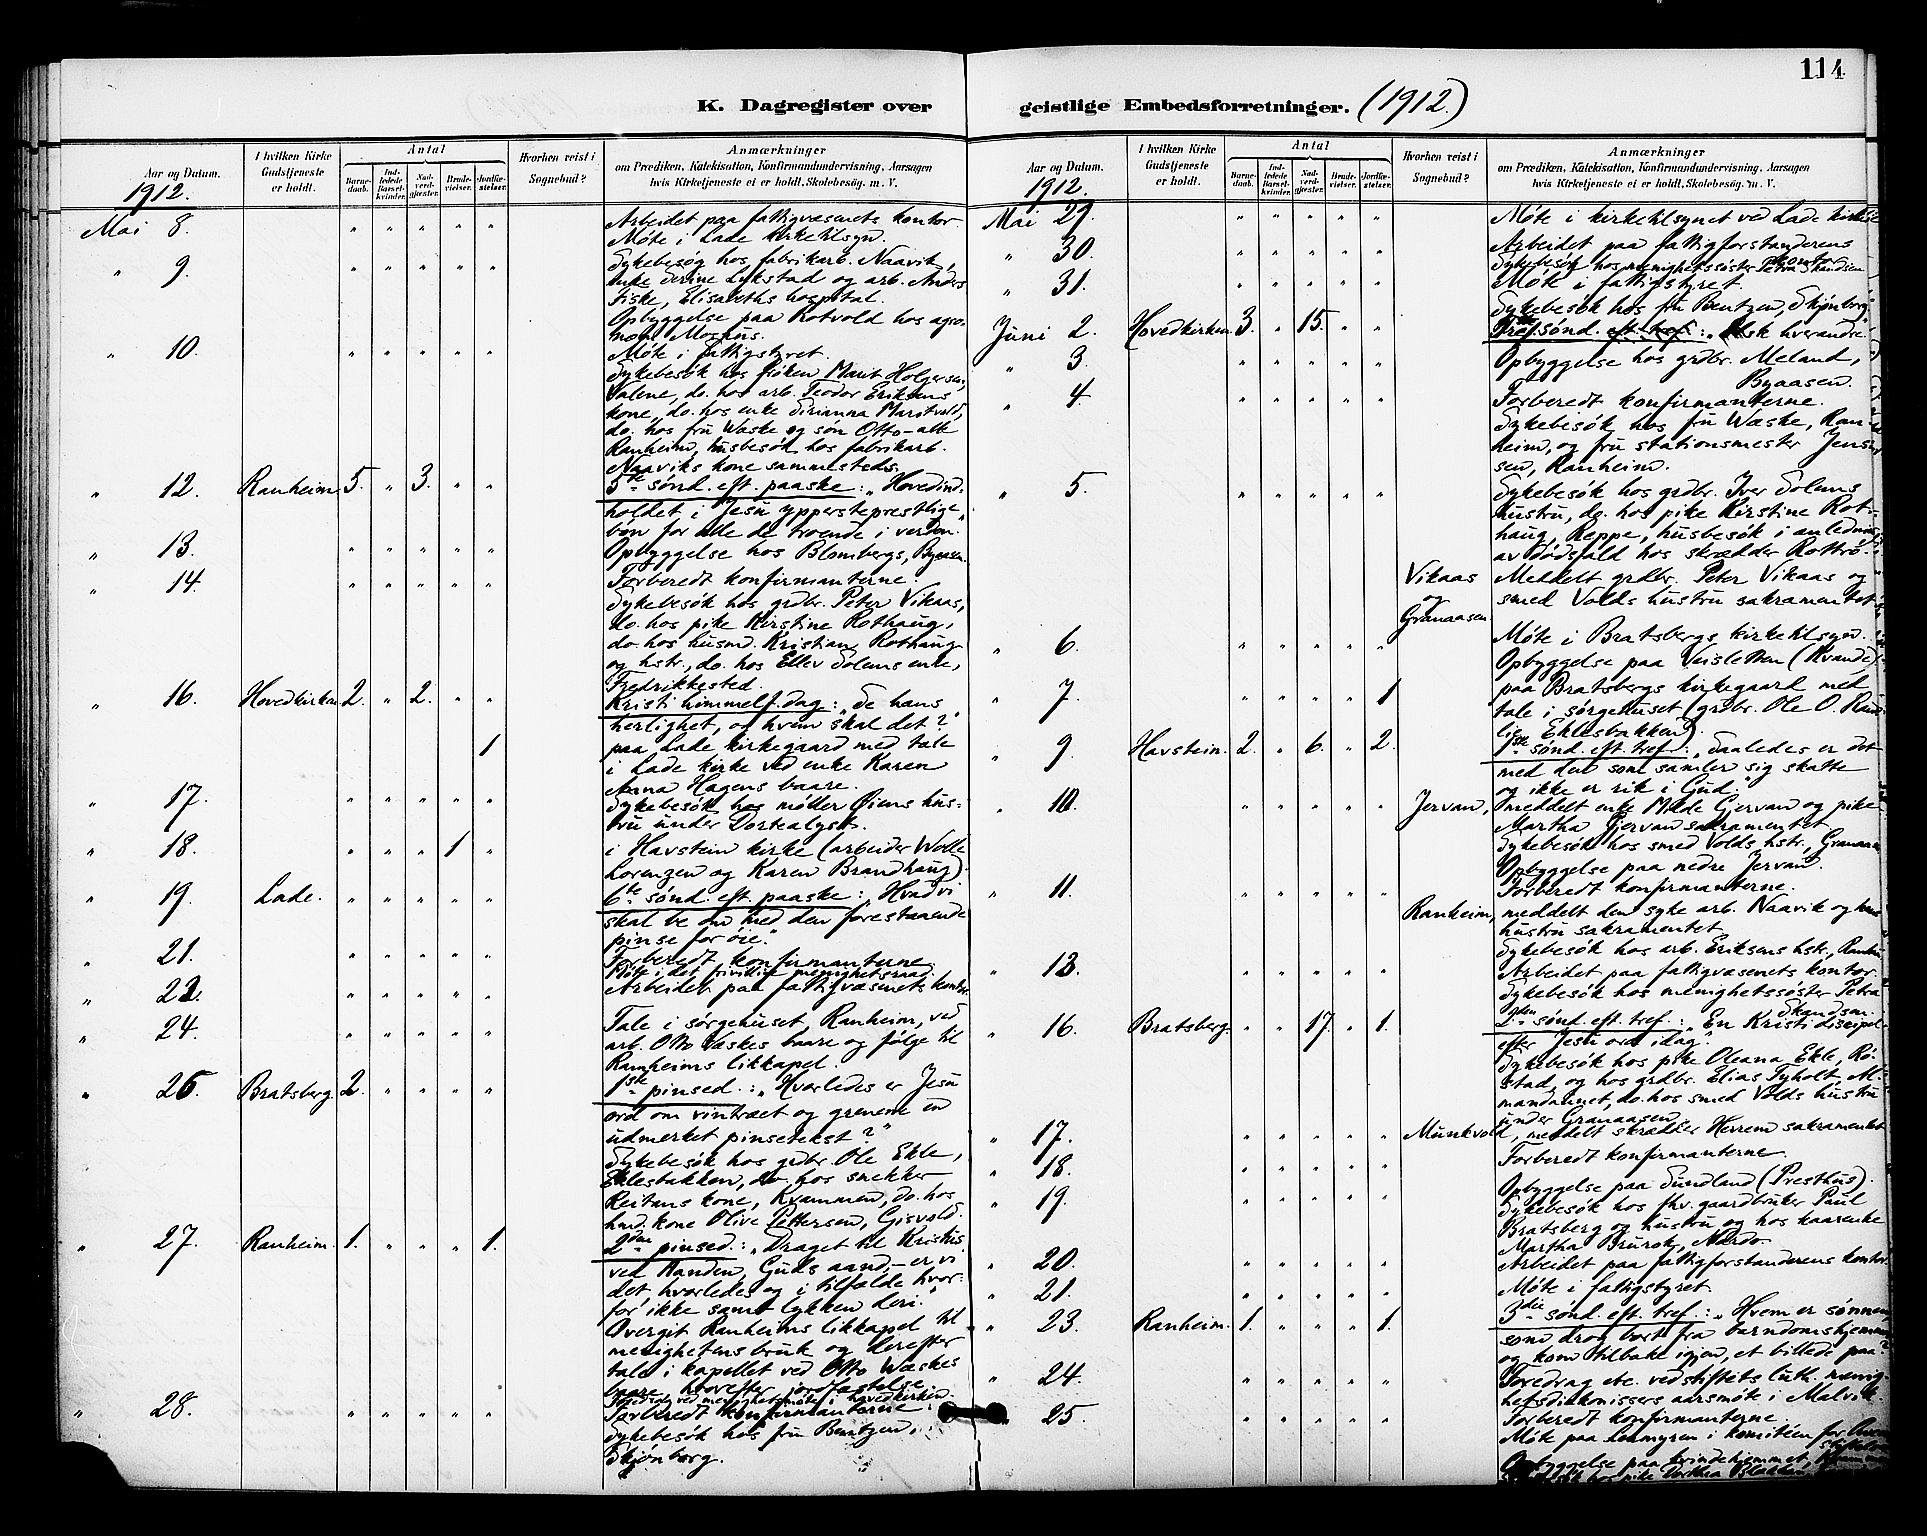 114
K. Dagregister over geistlige Embedsforretninger. (1912.)
Aar og Datum.
I hvilken Kirke Gudstjeneste er holdt.
Antal
Barnedaab.
Indledede Barselkvinder.
Nadverdgjester.
Brudevielser.
Jordfæstelser.
Hvorhen reist i Sognebud?
Anmærkninger
om Prædiken, Katekisation, Konfirmandundervisning, Aarsagen
hvis Kirketjeneste ei er holdt, Skolebesøg. m. V.
1912.
Mai 8. " " " " " Arbeidet paa fattigvæsenets kontor.
Møte i Lade kirketilsyn.
" 9. " " " " " Sykebesøg hos fabrikarb. Naavik,
enke Serine Lykstad og arb. Anders
Fiske, Elisabeths hospital.
Opbyggelse paa Rotvold hos agro-
nom Morhus.
" 10. " " " " " Møte i fattigstyret.
Sykebesøk hos frøken Marit Holgersen,
Valene, do. hos arb. Teodor Eriksens
kone, do. hos enke Sirianna Maritvold,
do. hos fru Wæske og søn Otto - alle
Ranheim, husbesøk hos fabrikarb.
Naaviks kone sammesteds.
" 12. Ranheim. 5. " 3. " " 5te sønd. eft. paaske: "Hovedind-
holdet i Jesu ypperstepresterlige
bøn for alle de troende i verden."
" 13. " " " " " Opbyggelse hos Blombergs, Byaasen.
" 14. " " " " " Forberedt konfirmanterne.
Sykebesøk hos grdbr. Peter Vikaas,
do. hos pike Kirstine Rothaug,
do. hos husmd. Kristian Rothaug
og hstr., do. hos Ellev Solems enke,
Fredrikkested.
" 16. Hovedkirken 2. " 2. " " Kristi himmelf. dag: "Se hans
herlighet, og hvem skal det?"
1 paa Lade kirkegaard med tale
i Lade kirke ved enke Karen
Anna Hagens baare.
" 17. " " " " " Sykebesøk hos møller Øiens hus-
tru under Dortealyst.
" 18. " " " 1 " i Havstein kirke (arbeider Wolle
Lorenzen og Karen Brandhaug).
" 19. Lade. " " " " " 6te sønd. eft. paaske: "Hvad vi
skal be om med den forestaaende
pinse for øie."
" 21. " " " " " Forberedt konfirmanterne.
Møte i det frivillige menighetsraad.
" 22. " " " " " Arbeidet paa fattigvæsenets kontor.
" 24. " " " " " Tale i sørgehuset, Ranheim, ved
arb. Otto Wæskes baare og følge til
Ranheims likkapel.
" 26. Bratsberg. 2. " " " " 1ste pinsed.: "Hvorledes er Jesu
ord om vintræet og grenene en
udmerket pinsetekst?"
Sykebesøk hos grdbr. Ole Ekle,
Eklesbakken, do. hos snekker
Reitans kone, Kvammen, do. hos
hmd. kone Olive Pettersen, Gisvold.
" 27. Ranheim. 1. " " " 1. 2den pinsed.: "Draget til Kristus
ved Aanden, Guds aand, - er vi
det, hvorledes og i tilfælde hvor-
for ikke samt lykken deri."
Overgit Ranheims likkapel til
menighetens bruk og derefter
tale i kapellet ved Otto Wæskes
baare, hvorefter jordfæstelse.
Foredrag ved menighetsmøte i hovedkirken.
" 28. " " " " " Forberedt konfirmanterne.
Sykebesøk hos fru Bentzen,
Skjønborg.
Aar og Datum.
I hvilken Kirke Gudstjeneste er holdt.
Antal
Barnedaab.
Indledede Barselkvinder.
Nadverdgjester.
Brudevielser.
Jordfæstelser.
Hvorhen reist i Sognebud?
Anmærkninger
om Prædiken, Katekisation, Konfirmandundervisning, Aarsagen
hvis Kirketjeneste ei er holdt, Skolebesøg. m. V.
1912.
Mai 29. " " " " " Møte i kirketilsynet ved Lade kirke
" 30. " " " " " Arbeidet paa fattigforstanderens
kontor
Sykebesøk hos menighetssøster Petra Skandsen
" 31. " " " " " Møte i fattigstyret.
Sykebesøk hos fru Bentzen, Skjønborg.
Juni 2. Hovedkirken 3. " 15. " " Trefsønd. eft. tref.: "Elsk hverandre.
" 3. " " " " " Opbyggelse hos grdbr. Meland,
Byaasen.
" 4. " " " " " Forberedt konfirmanterne.
Sykebesøk hos fru Wæske, Ran-
heim, og fru stationsmester Jens-
sen, Ranheim.
" 5. " " " " " Sykebesøk hos grdbr. Iver Solems
hustru, do. hos pike Kirstine Rot-
haug, Reppe, husbesøk i anledning
av dødsfald hos skrædder Rottrø.
Vikaas og Granaasen Meddelt grdbr. Peter Vikaas og
smed Volds hustru sakramentet
" 6. " " " " " Møte i Bratsbergs kirketilsyn.
Opbyggelse paa Veisletten (Kvande).
" 7. " " " " 1 paa Bratsbergs kirkegaard med
tale i sørgehuset (grdbr. Ole O. Rand-
lie, Eklesbakken).
" 9. Havstein. 2. " 6. " 2. 1ste sønd. eft. tref.: "Saaledes er det
med den som samler sig skatte
og ikke er rik i Gud."
" 10. " " " " " Jervan, meddelt enke Gjervan og pike
Martha Gjervan sakramentet.
Sykebesøk hos smed Volds hstr., Granaasen
Opbyggelse paa nedre Jervan.
" 11. " " " " " Forberedt konfirmanterne.
Ranheim, meddelt den syke arb. Naavik og hans
hustru sakramentet.
Sykebesøk hos arb. Eriksens hstr., Ranheim
" 13. " " " " " Arbeidet paa fattigvæsenets kontor.
Sykebesøk hos menighetssøster Petra
Skandsen.
" 16. Bratsberg. " " 17. " 1. 2den sønd. eft. tref.: "En Kristi discipel
efter Jesu ord idag."
Sykebesøk hos pike Oleana Ekle, Rø-
stad, og hos grdbr. Elias Tyholt,
do. hos smed Volds hustru
under Granaasen.
" 17. " " " " " Munkvold, meddelt skrædder Herrem sakramentet
" 18. " " " " " Forberedt konfirmanterne.
Opbyggelse paa Sundland (Presthus).
" 19. " " " " " Sykebesøk hos fhv. gaardbruker Paul
Bratsberg og hustru og hos kaarenke
Martha Brurok, Nardo.
" 20. " " " " " Arbeidet paa fattigforstanderens kontor
" 21. " " " " " Møte i fattigstyret.
" 23. Ranheim. 1. " " " 1. 3die sønd. eft. tref.: "Hvem er sønnen,
som drog bort fra barndomshjemmet
og kom tilbake igjen, et billede paa?"
" 24. " " " " " Foredrag etc. ved stiftets luth. menig-
hetsdiakonissers aarsmøte i Malvik.
" 25. " " " " " Forberedt konfirmanterne.
Møte paa i komitéen for
Opbyggelse paa kvindehjemmet,
hos pike Dorthea